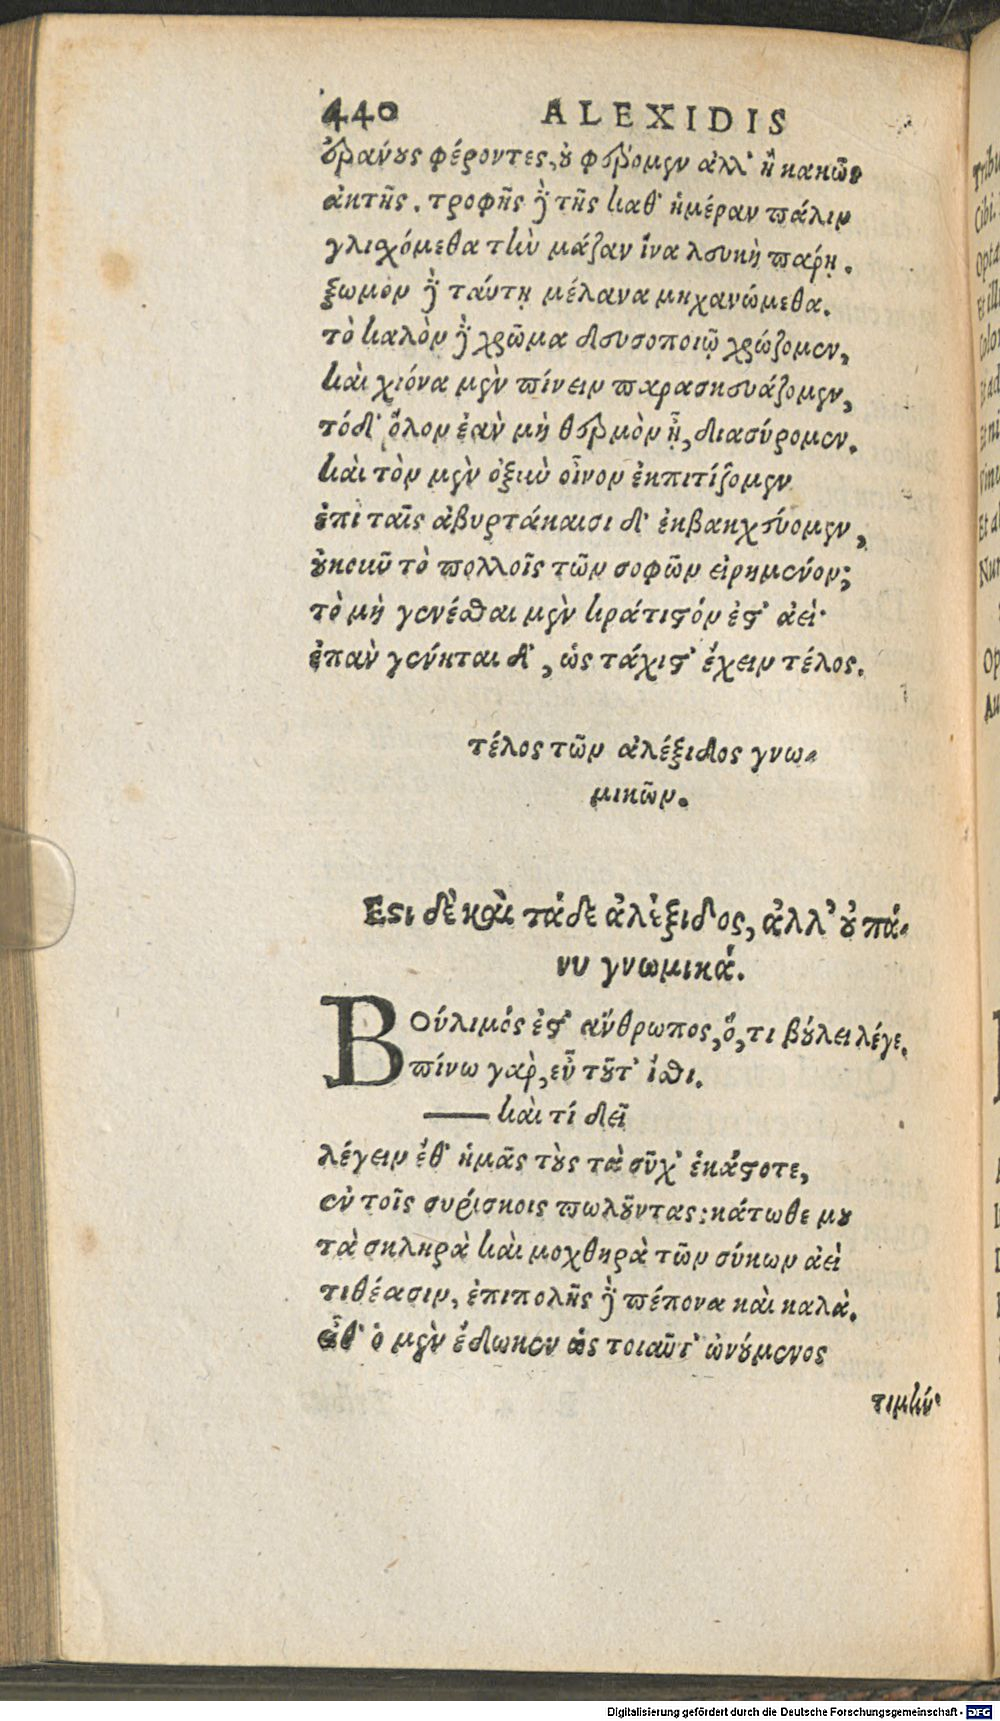 440 ALEXIDIS
ἐράνους φέροντες, οὐ φέρομεν ἀλλ' ἢ κακῶς
ἀκτῆς. τροφῆς δὲ τῆς καθ' ἡμέραν πάλιν
γλιχόμεθα τὴν μάζαν ἵνα λευκὴ παρῇ.
ζωμὸν δὲ ταύτῃ μέλανα μηχανώμεθα.
τὸ καλὸν δὲ χρῶμα δευσοποιῷ χρώζομεν,
καὶ χιόνα μὲν πίνειν παρασκευάζομεν,
τόδ' ὅλον ἐὰν μὴ θερμὸν ᾖ, διασύρομεν.
καὶ τὸν μὲν ὀξὺν οἶνον ἐκπιτίζομεν
ἐπὶ ταῖς ἀβυρτάκαισι δ' ἐκβακχεύομεν,
οὐκοῦν τὸ πολλοῖς τῶν σοφῶν εἰρημένον;
τὸ μὴ γενέσθαι μὲν κράτιστόν ἐστ' ἀεί·
ἐπὰν γένηται δ', ὡς τάχιστ' ἔχειν τέλος.
τέλος τῶν ἀλέξιδος γνω-
μικῶν.
Εστι δὲ καὶ τάδε ἀλέξιδος, ἀλλ' οὐ πά-
νυ γνωμικά.
Βούλιμός ἐστ' ἄνθρωπος, ὅ, τι βούλει λέγε.
πίνω γαρ, εὖ τοῦτ' ἴσθι.
— καὶ τί δεῖ
λέγειν ἔθ' ἡμᾶς τοὺς τὰ σῦχ' ἑκάστοτε,
ἐν τοῖς συρίσκοις πωλοῦντας; κάτωθε μου
τὰ σκληρὰ καὶ μοχθηρὰ τῶν σύκων ἀεὶ
τιθέασιν, ἐπιπολῆς δὲ πέπονα καὶ καλὰ.
εἶθ' ὁ μὲν ἔδωκεν ὡς τοιαῦτ' ὠνούμενος
τιμήν·
Digitalisierung gefördert durch die Deutsche Forschungsgemeinschaft - DFG